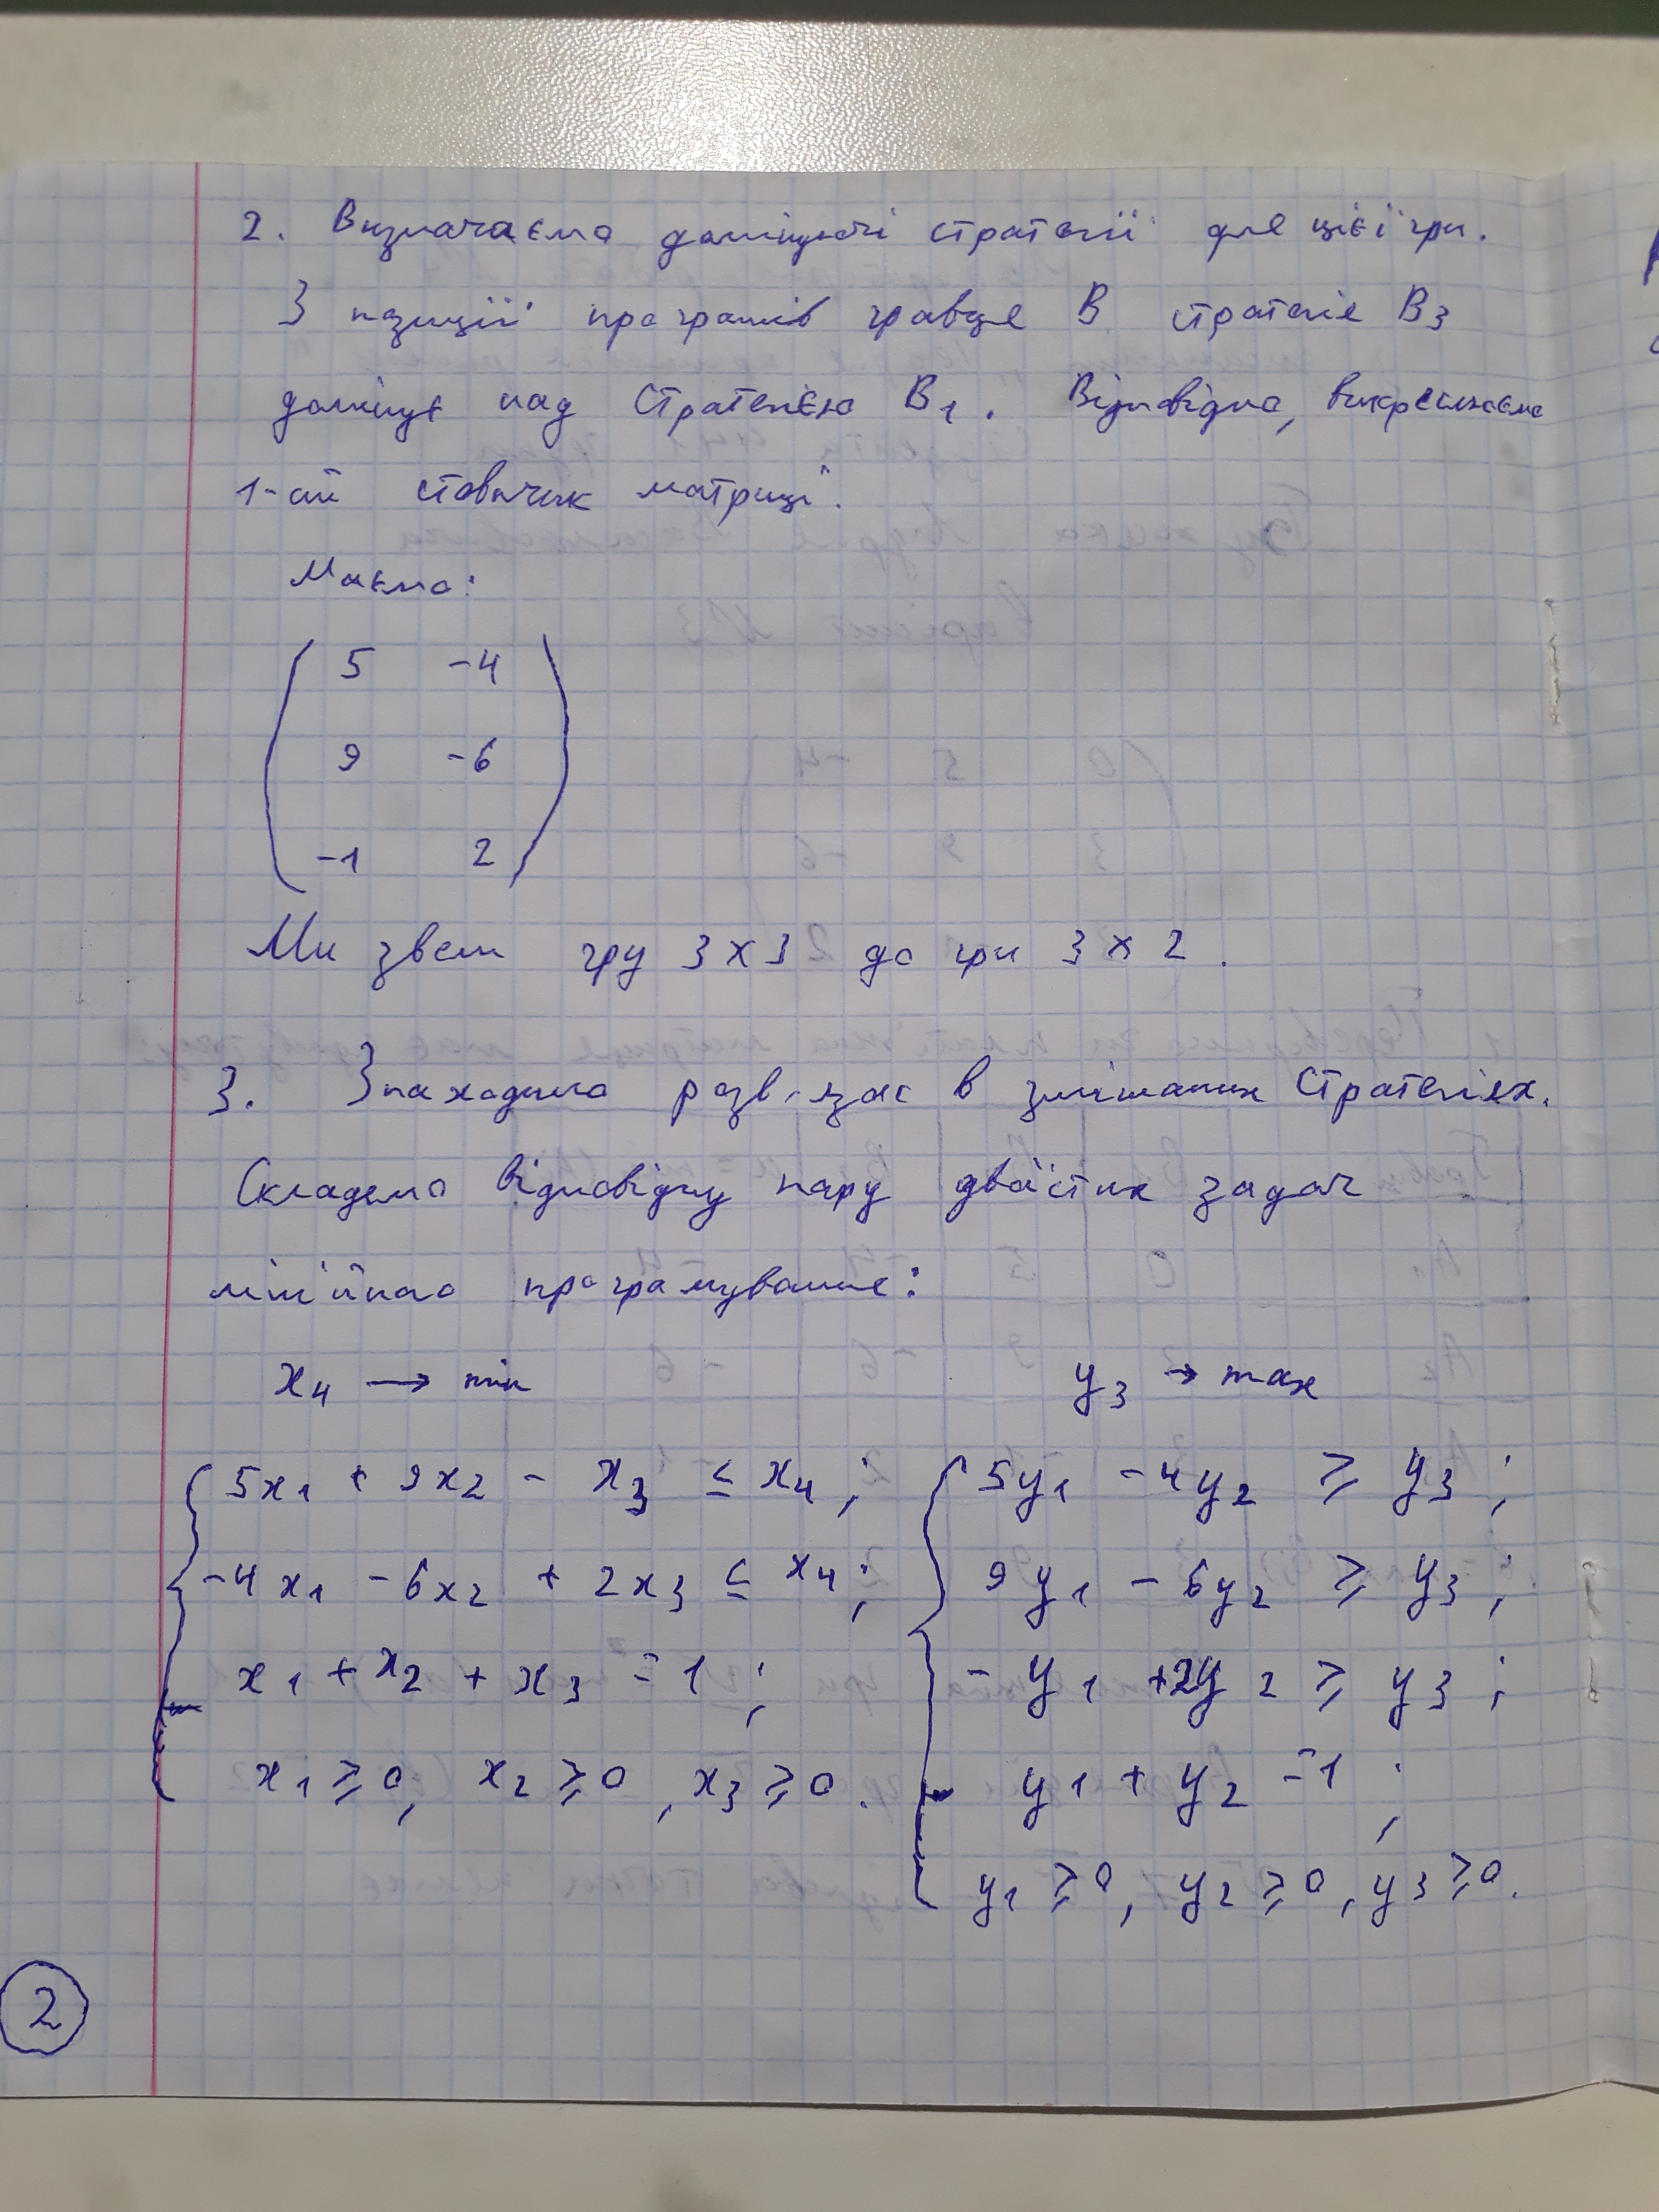 2. Визначаємо домінуючі стратегії для цієї гри.
З позиції програшів гравця В стратегія В3
домінує над стратегією В1. Відповідно, викреслюємо
1-ий стовпчик матриці.
Маємо:
5 -4
9 -6
-1 2
Ми звели гру 3х3 до гри 3х2.
3. Знаходимо розв'язок в змішаних стратегіях.
Складемо відповідну пару двоїстих задач
лінійного програмування:
x4 → min y3 → max
5x1 + 9x2 - x3 ≤ x4; 5y1 - 4y2 ≥ y3;
-4x1 - 6x2 + 2x3 ≤ x4; 9y1 - 6y2 ≥ y3;
x1 + x2 + x3 = 1; -y1 + 2y2 ≥ y3;
x1 ≥ 0, x2 ≥ 0, x3 ≥ 0. y1 + y2 = 1;
y1 ≥ 0, y2 ≥ 0, y3 ≥ 0.
2